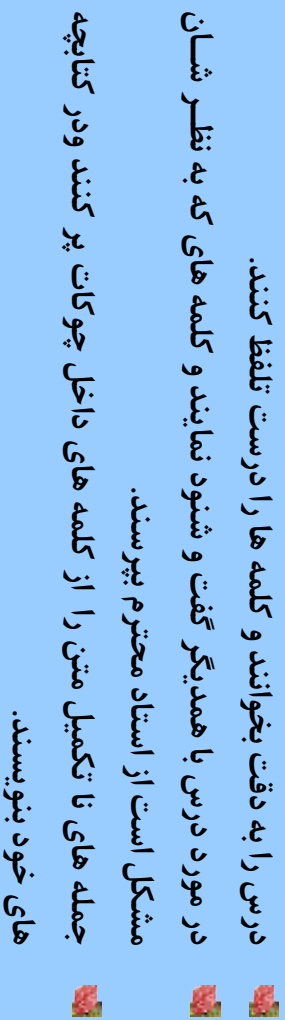 درس را به دقت بخوانند و کلمه ها را درست تلفظ کنند.
در مورد درس با همدیگر گفت و شنود نمایند و کلمه های که به نظر شان
مشکل است از استاد محترم بپرسند.
جمله های نا تکمیل متن را از کلمه های داخل چوکات پر کنند ودر کتابچه
های خود بنویسند.